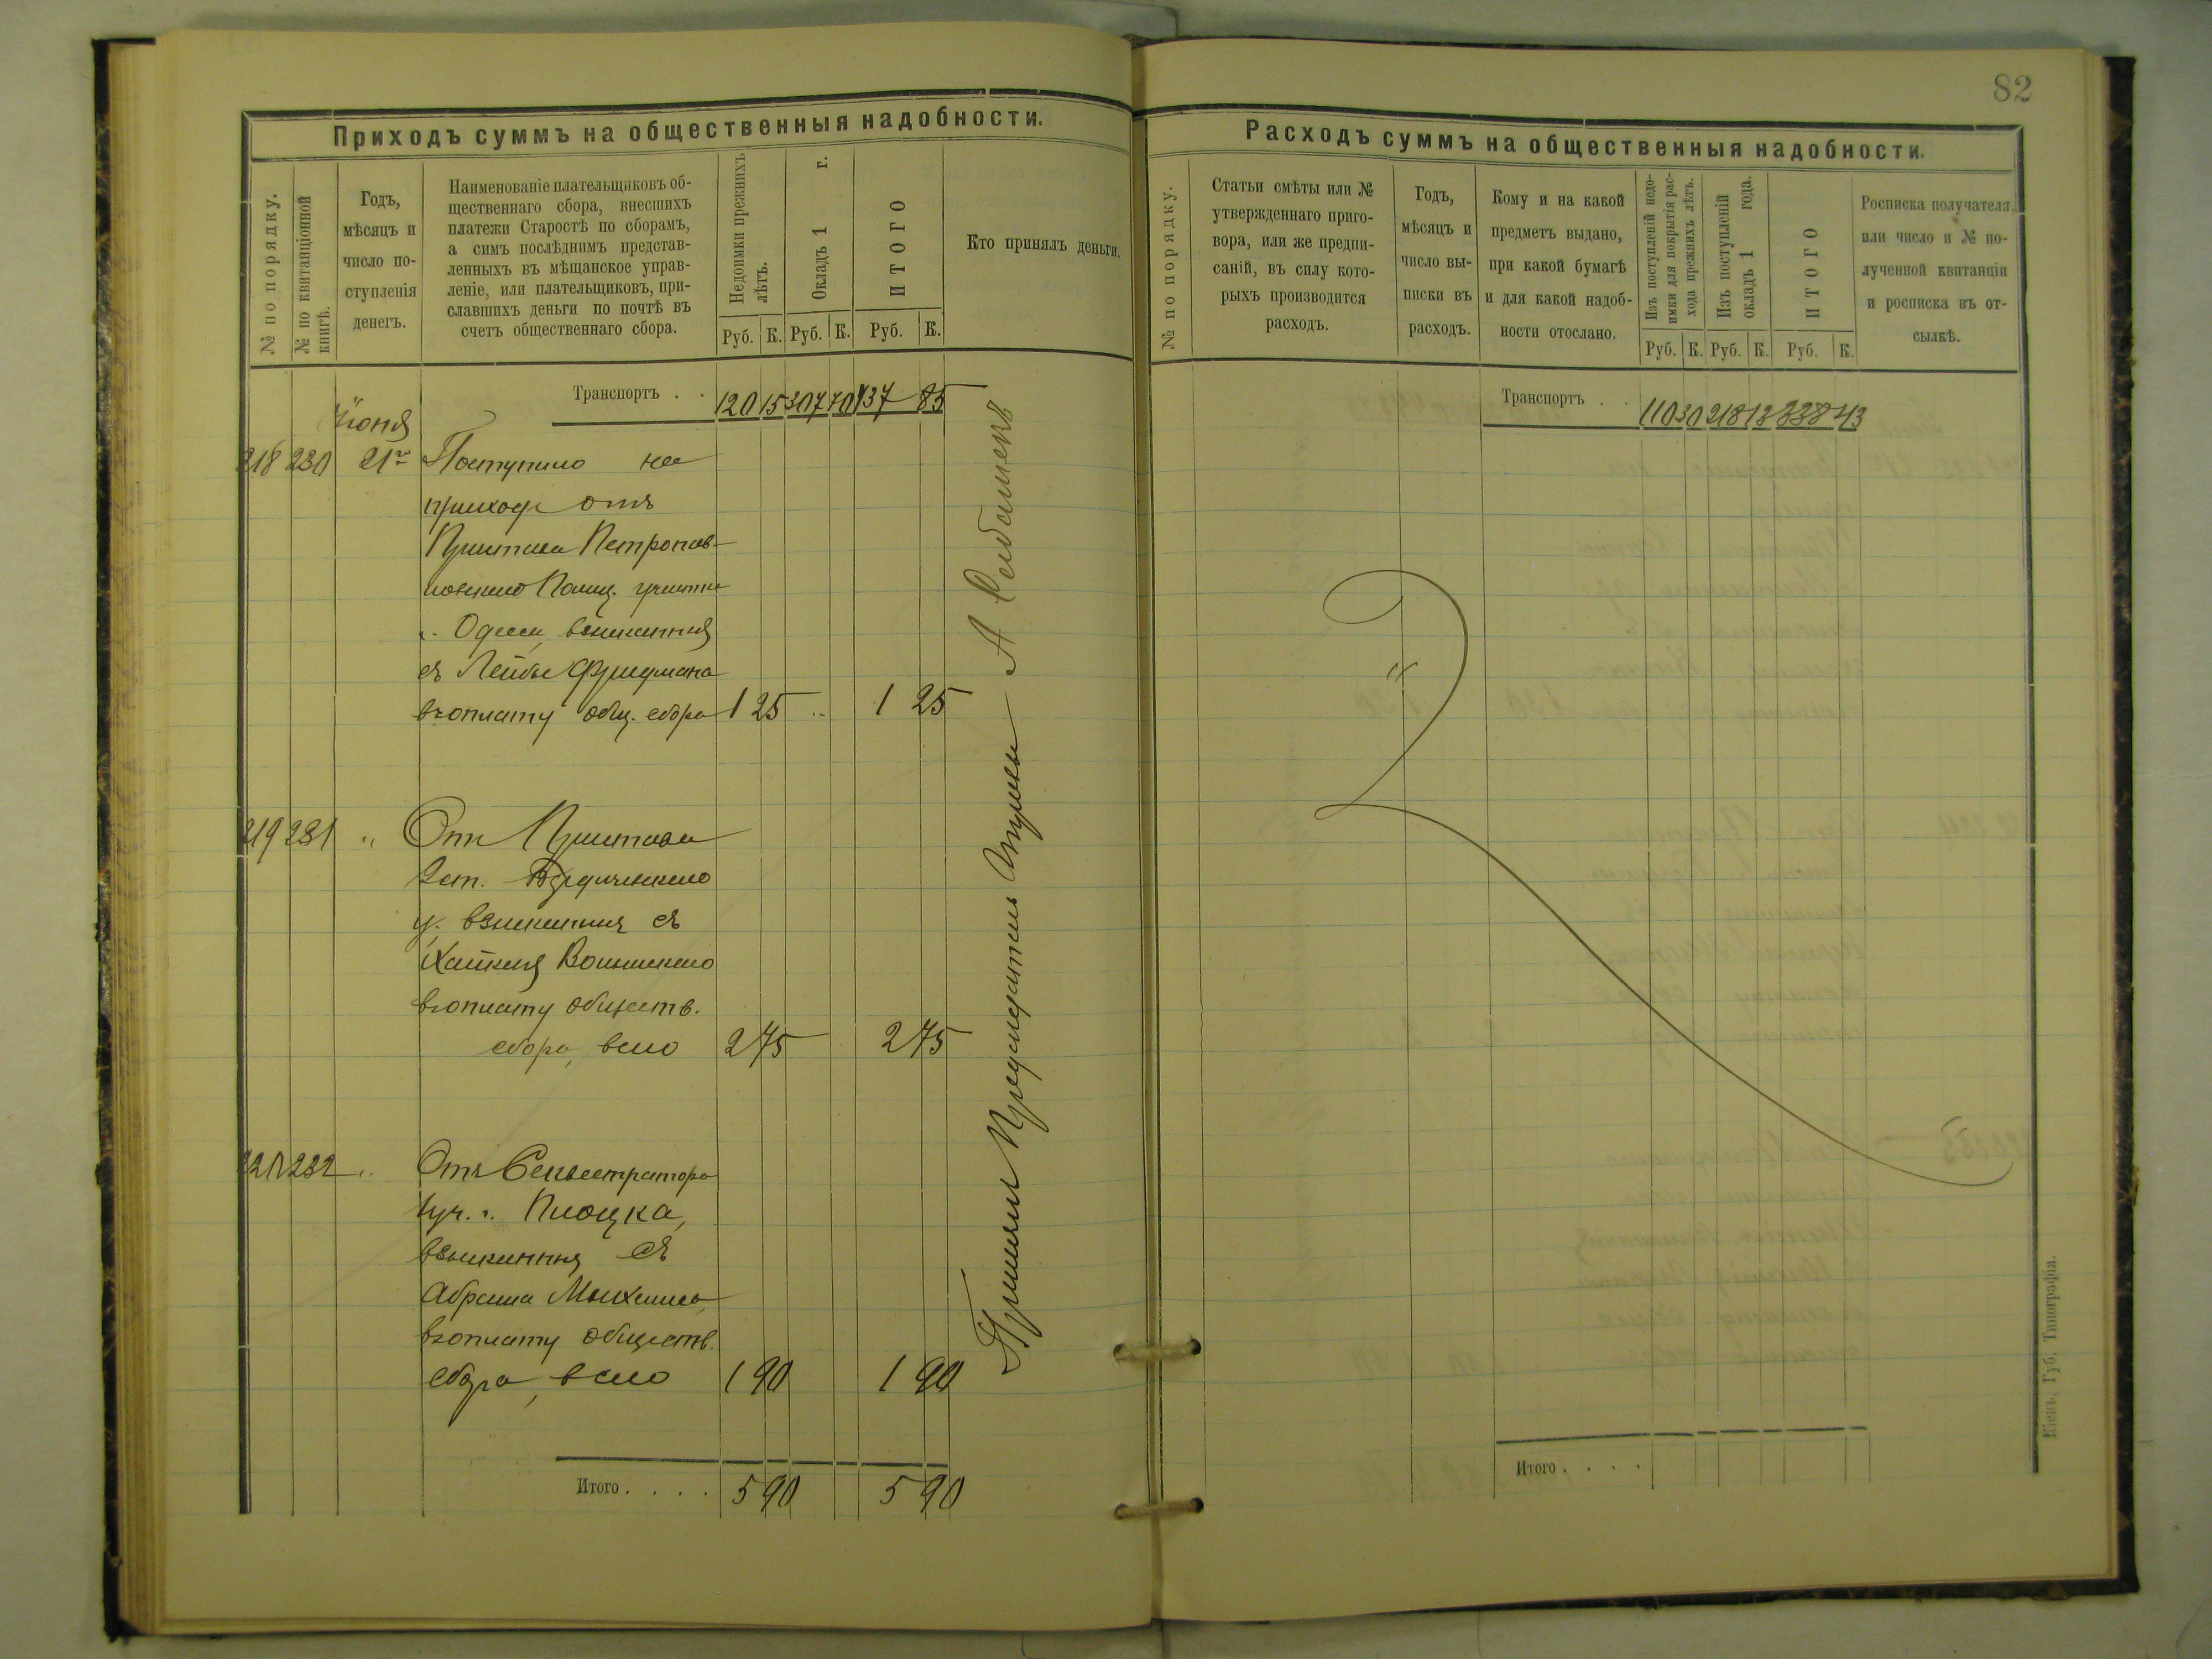 Приходъ суммъ на общественныя надобности.
№ по порядку.
№ по квитанціонной
книгѣ.
Годъ,
мѣсяцъ и
число по-
ступленія
денегъ.
Наименованіе плательщиковъ об-
щественнаго сбора, внесшихъ
платежи Старостѣ по сборамъ,
а симъ послѣднимъ представ-
ленныхъ въ мѣщанское управ-
леніе, или плательщиковъ, при-
славшихъ деньги по почтѣ въ
счетъ общественнаго сбора.
Недоимки прежнихъ
лѣтъ.
Окладъ 1 г.
ИТОГО
Руб. К. Руб. К. Руб. К.
Кто принялъ деньги.
Транспортъ . . 120 15 307 70 437 85
Іюня
218 230 21 Поступило на
приходъ отъ
Пристава Петропав-
ловскаго Полиц. участка
г. Одессы, взысканныя
съ Лейбы Фридмана
въ оплату общ. сбора 1 25 .. 1 25
219 231 " Отъ Пристава
2 ст. Бердичевскаго
у. взысканныя съ
въ оплату обществ.
сбора, всего 2 75 2 75
220 232 " Отъ Секвестратора
1 уч. г. Плоцка,
взысканныя съ
Абрама
въ оплату обществ.
сбора, всего 1 90 1 90
Итого . . . . 5 90 5 90
Принялъ Предсѣдатель Управы А
82
Расходъ суммъ на общественныя надобности.
№ по порядку.
Статьи смѣты или №
утвержденнаго приго-
вора, или же предпи-
саній, въ силу кото-
рыхъ производится
расходъ.
Годъ,
мѣсяцъ и
число вы-
писки въ
расходъ.
Кому и на какой
предметъ выдано,
при какой бумагѣ
и для какой надоб-
ности отослано.
Изъ поступленій недо-
имки для покрытія рас-
хода прежнихъ лѣтъ.
Изъ поступленій
окладъ 1 года.
ИТОГО
Руб. К. Руб. К. Руб. К.
Росписка получателя,
или число и № по-
лученной квитанціи
и росписка въ от-
сылкѣ.
Транспортъ . . 110 30 218 13 328 43
Итого . . . .
Кіевъ, Губ. Типографія.